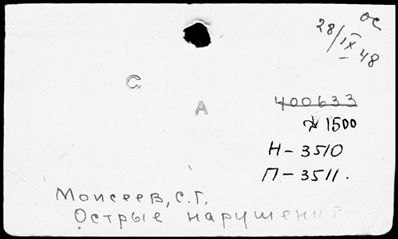 ОС
28/IX 48
С.
А
400633
1500
Н-3510
П-3511.
Моисеев, С.Г.
Острые нарушения